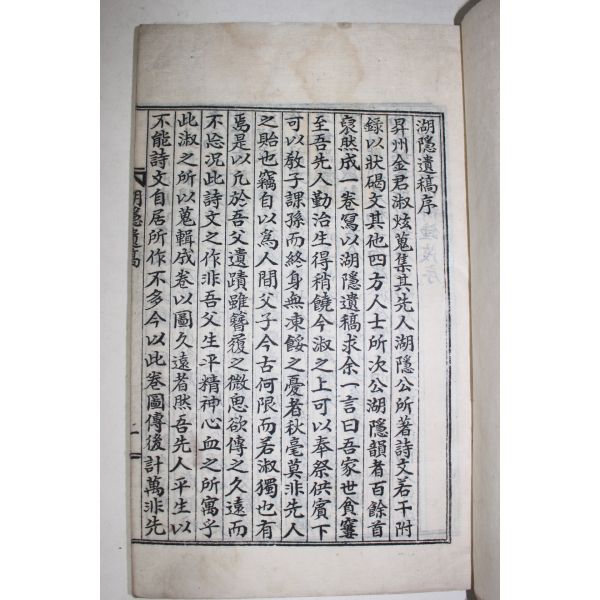 湖隱遺稿序
昇州金君淑炫蒐集其先人湖隱公所著詩文若干附
錄以狀碣文其他四方人士所次公湖隱韻者百餘首
裒然成一卷寫以湖隱遺稿求余一言曰吾家世貧窶
至吾先人勤治生得稍饒今淑之上可以奉祭供賓下
可以敎子課孫而終身無凍餒之憂者秋毫莫非先人
之貽也竊自以爲人間父子今古何限而若淑獨也有
焉是以凡於吾父遺蹟雖簪履之微思欲傳之久遠而
不忘况此詩文之作非吾父生平精神心血之所寓乎
此淑之所以蒐輯成卷以圖久遠者然吾先人平生以
不能詩文自居所作不多今以此卷圖傳後計萬非先
湖隱遺稿